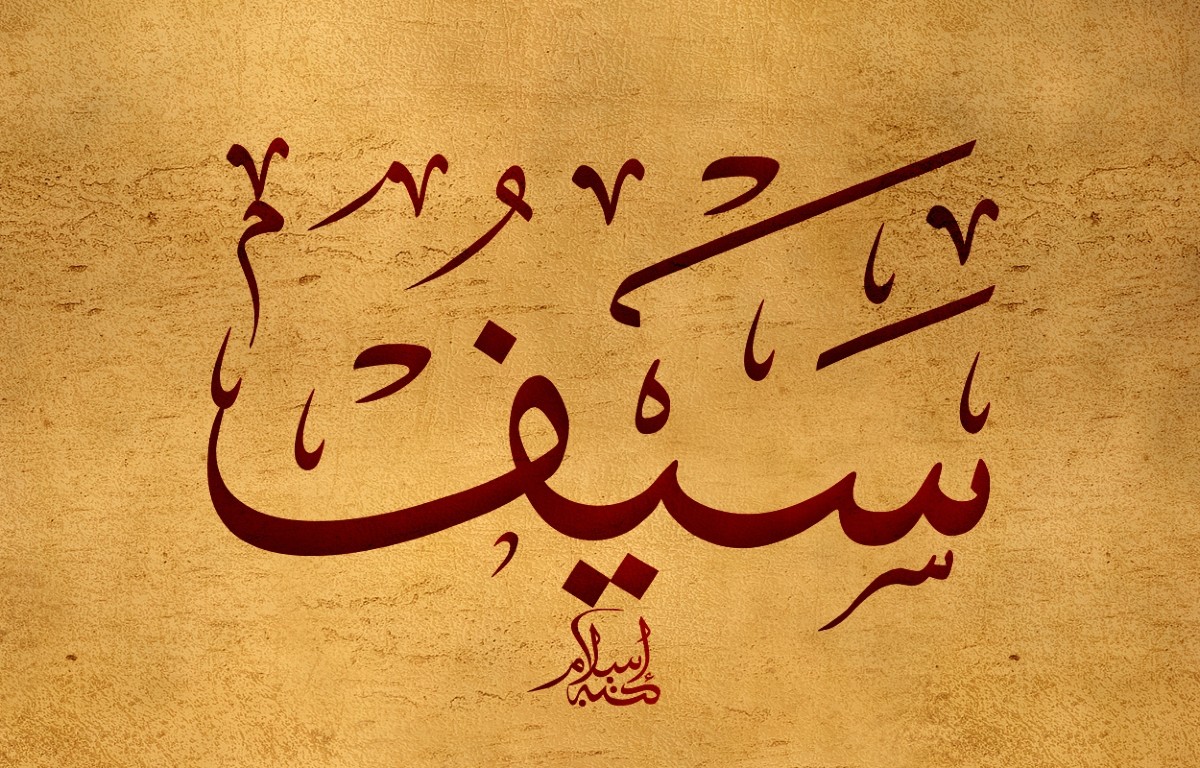 سَيْفُ
كتبه إسلام